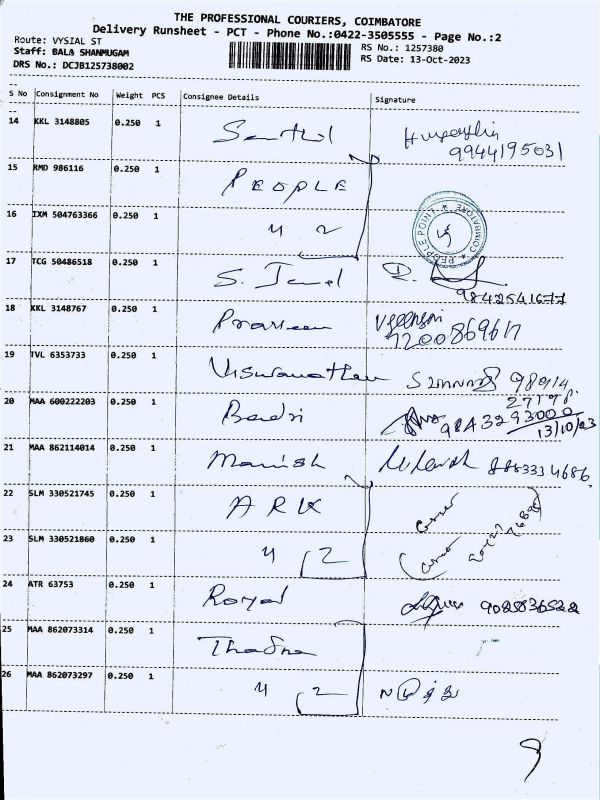 THE PROFESSIONAL COURIERS, COIMBATORE
Delivery Runsheet - PCT - Phone No.:0422-3505555 - Page No.:2
Route: VYSIAL ST
Staff: BALA SHANMUGAM
DRS No.: DCJB125738002
RS No.: 1257380
RS Date: 13-Oct-2023
S No Consignment No Weight PCS Consignee Details Signature
14 KKL 3148805 0.250 1 Senthil 9944195031
15 RMD 986116 0.250 1 PEOPLE
16 IXM 504763366 0.250 1 ч 2 PEOPLE POINT * COIMBATORE *
17 TCG 50486518 0.250 1 S. 9842541677
18 KKL 3148767 0.250 1 Praveen
19 TVL 6353733 0.250 1 Viswanathan
20 MAA 600222203 0.250 1 Badri 98432 93000
13/10/23
21 MAA 862114014 0.250 1 Manish 8883334686
22 SLM 330521745 0.250 1 ARK
23 SLM 330521860 0.250 1 ч 2
24 ATR 63753 0.250 1 Royal
25 MAA 862073314 0.250 1
26 MAA 862073297 0.250 1 ч 2